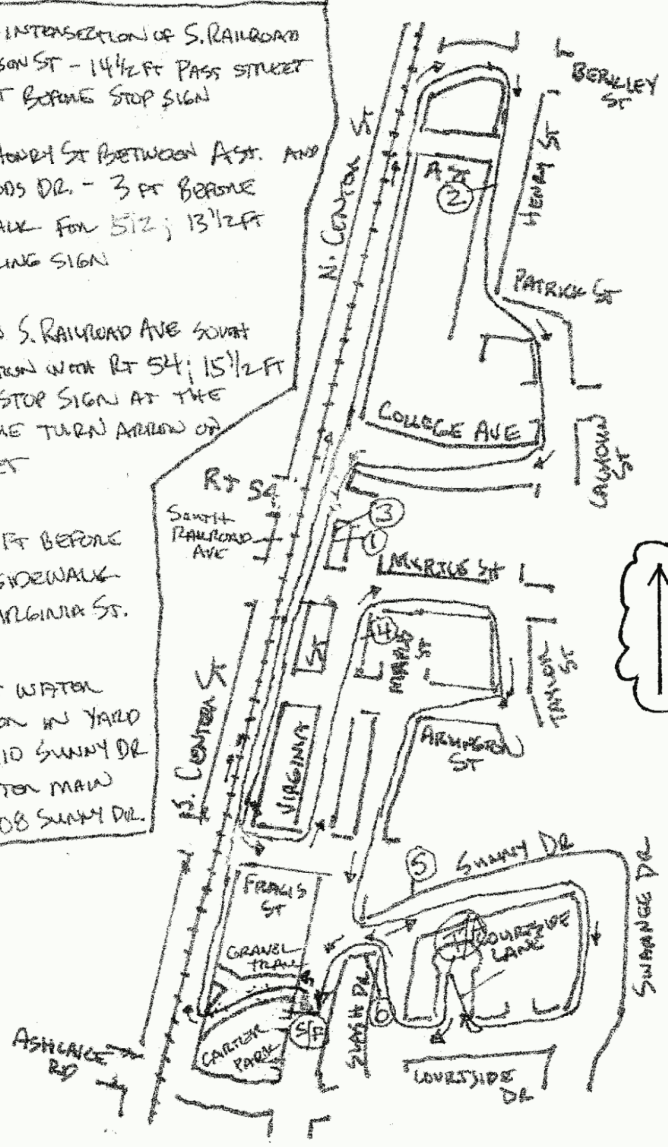 INTERSECTION OF S. RAILROAD
SON ST - 14½ FT PASS STREET
T BEFORE STOP SIGN
HENRY ST BETWEEN A ST. AND
ODS DR. - 3 FT BEFORE
ALK FOR 512; 13½ FT
ING SIGN
N S. RAILROAD AVE SOUTH
TION WITH RT 54; 15½ FT
STOP SIGN AT THE
E TURN ARROW ON
ET
FT BEFORE
SIDEWALK
VIRGINIA ST.
T WATER
ON IN YARD
10 SUNNY DR
TER MAIN
08 SUNNY DR.
BERKLEY
ST
N. CENTER ST
A ST
2
HENRY ST
PATRICK ST
COLLEGE AVE
CALHOUN
ST
RT 54
SOUTH
RAILROAD
AVE
3
1
MYRTLE ST
4
ST
TAYLOR
ST
S. CENTER ST
VIRGINIA
ARLINGTON
ST
5
SUNNY DR
SWANNGE DR
ST
GRAVEL
TRAIL
LANE
S/F
6
DR
CARTER
PARK
ASHCAKE
RD
COURTSIDE
DR